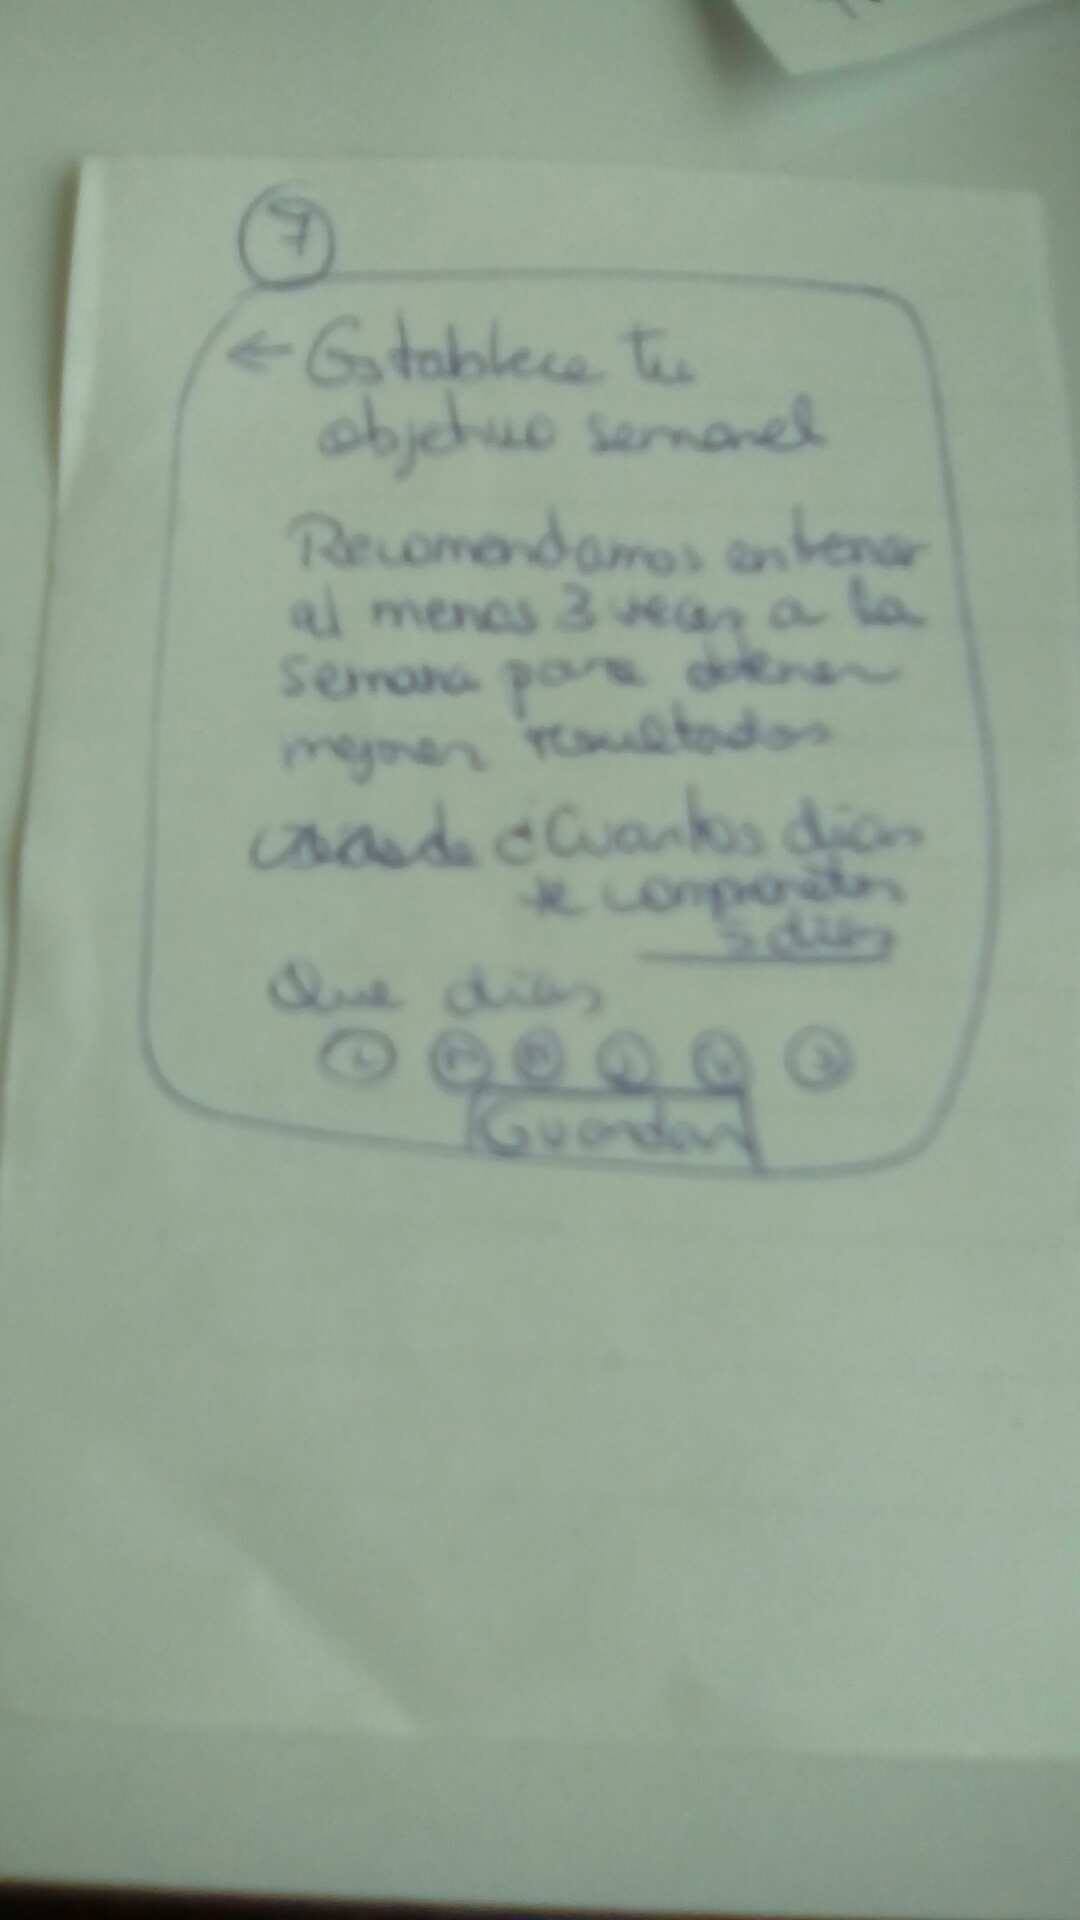 7
← Establece tu
objetivo semanal
Recomendamos entrenar
al menos 3 veces a la
semana para obtener
mejores resultados
¿Cuantos dias
te comprometes
5 dias
Que dias
L M M J V
Guardar